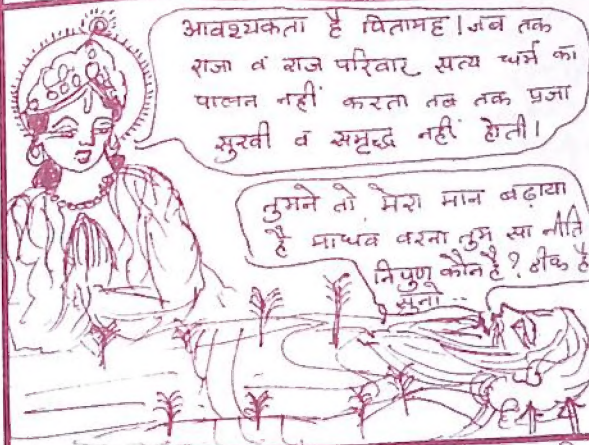 आवश्यकता है पितामह। जब तक
राजा व राज परिवार सत्य धर्म का
पालन नहीं करता तब तक प्रजा
सुखी व समृद्ध नहीं होती।
तुमने तो मेरा मान बढ़ाया
है माधव वरना तुम सा नीति
निपुण कौन है? ठीक है
सुनो...